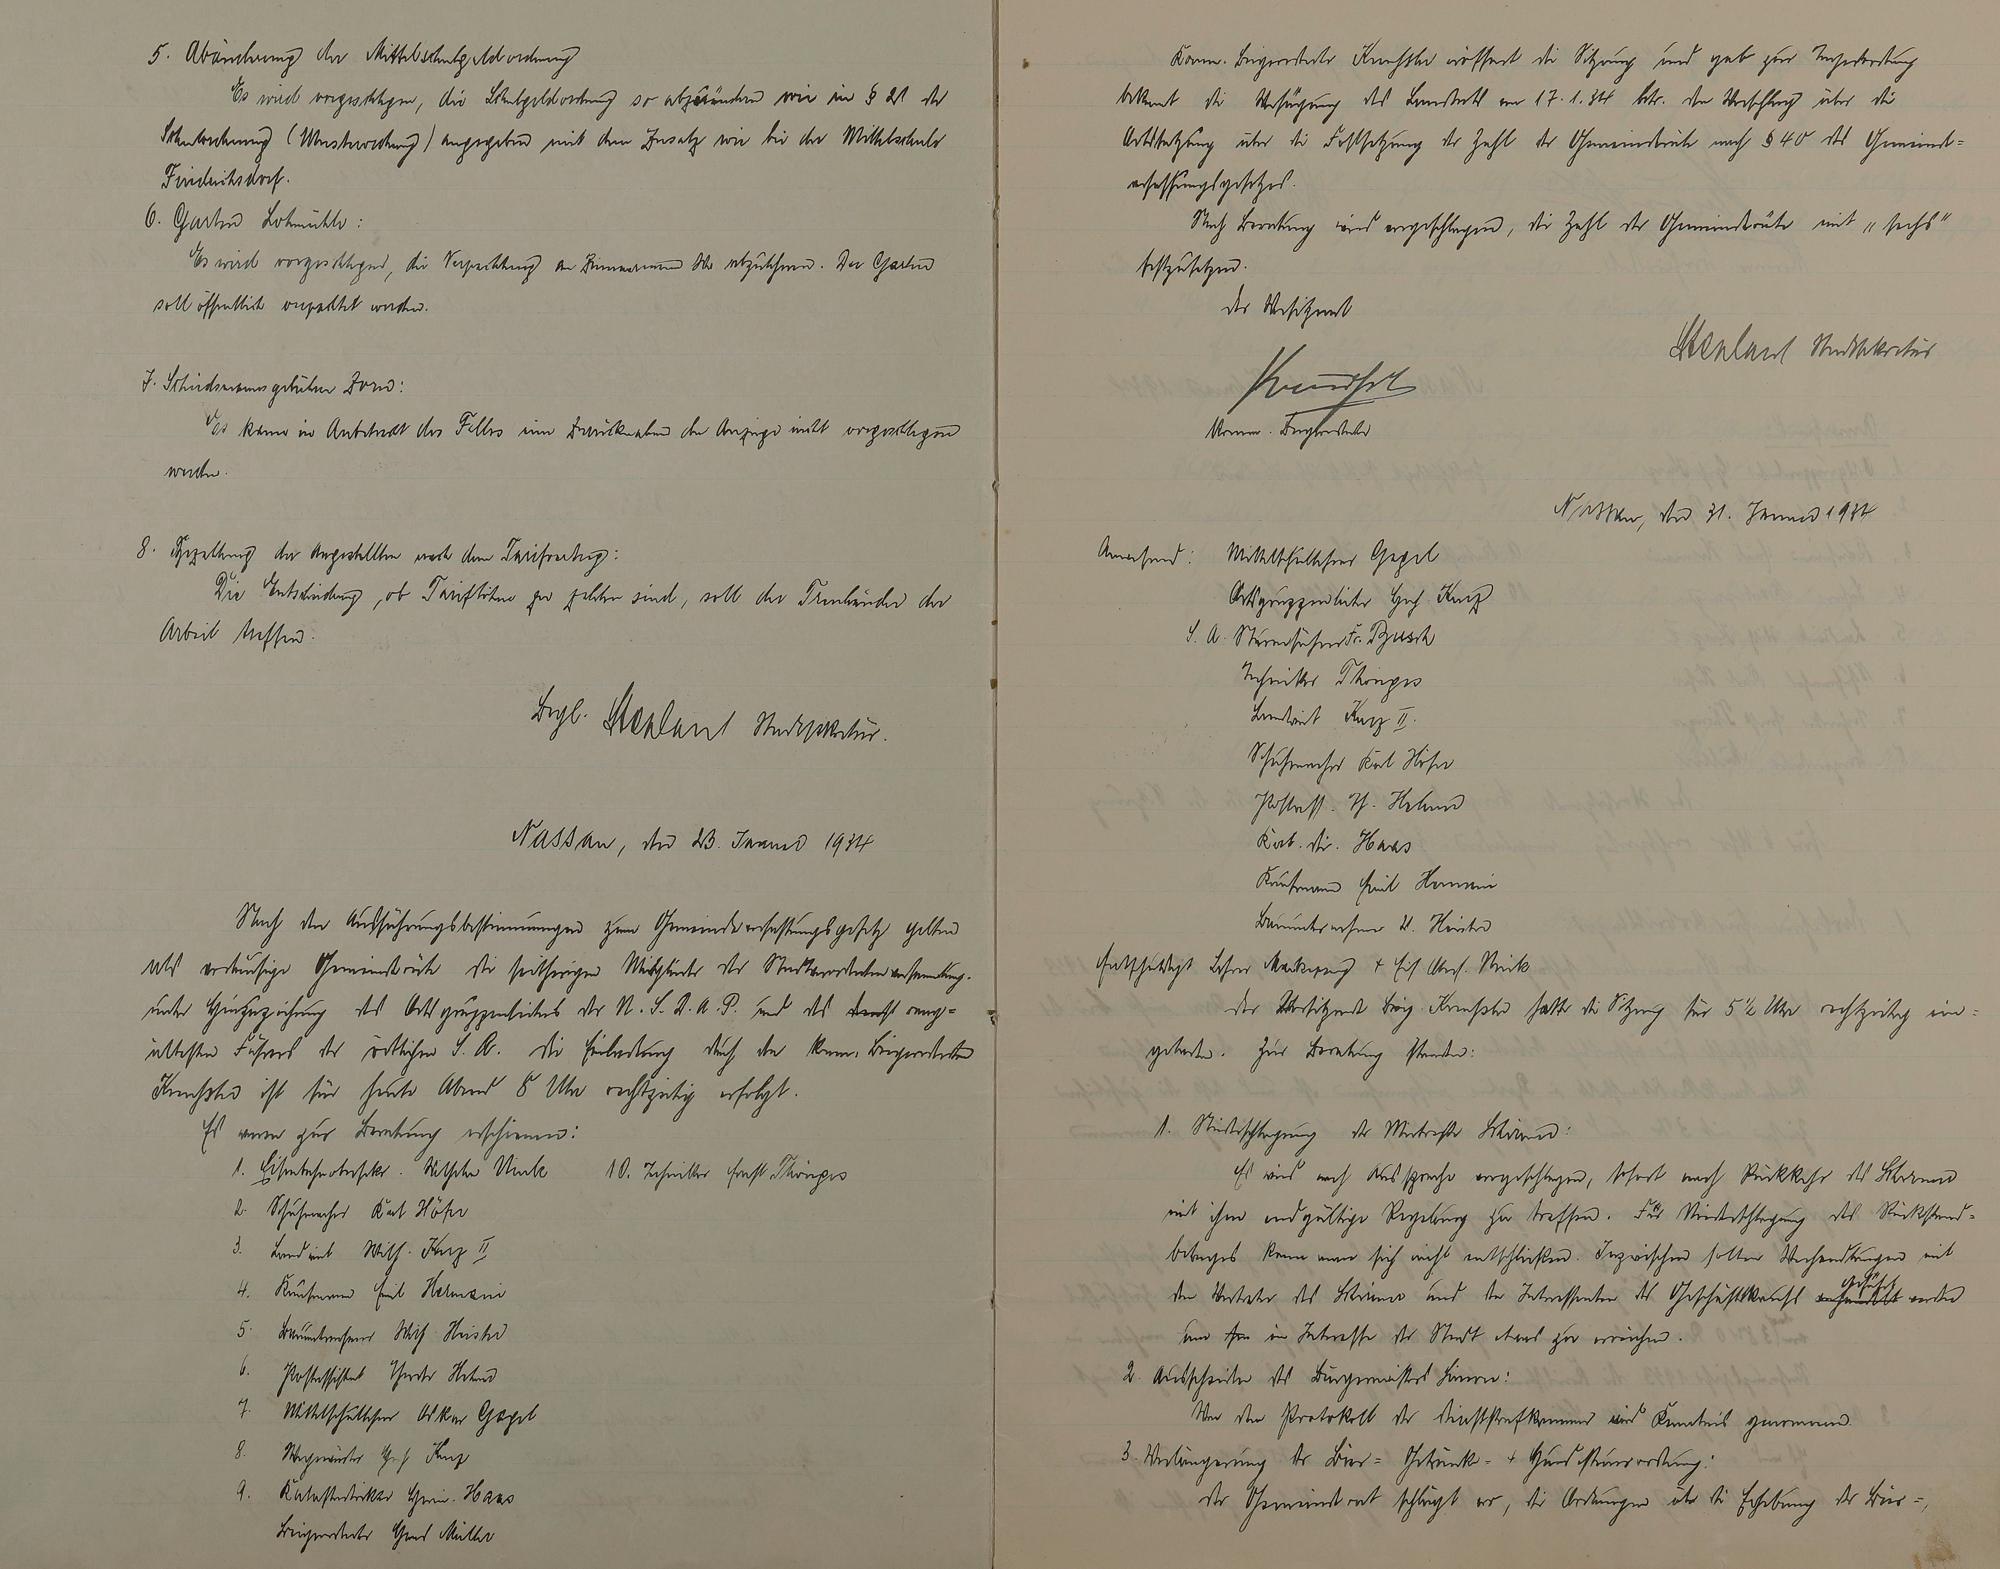 5. Abänderung der Mittelschulgeldordnung
Es wird vorgeschlagen, die Schulgeldordnung so abzuändern wie in § 21 der
Schulordnung (Musterordnung) angegeben mit dem Zusatz wie bei der Mittelschule
Friedrichsdorf.
6. Garten Lohmühle:
Es wird vorgeschlagen, die Verpachtung an Zimmermann abzulehnen. Der Garten
soll öffentlich verpachtet werden.
7. Schiedsmannsgebühren Zorn:
Es kann in Anbetracht des Falles eine Zurücknahme der Anzeige nicht vorgeschlagen
werden.
8. Bezahlung der Angestellten nach dem Tarifvertrag:
Die Entscheidung, ob Tariflöhne zu zahlen sind, soll der Treuhänder der
Arbeit treffen.
Begl. Stadtsekretär.
Nassau, den 23. Januar 1934
Nach den Ausführungsbestimmungen zum Gemeindeverfassungsgesetz gelten
als vorläufige Gemeinderäte die seitherigen Mitglieder der Stadtverordnetenversammlung.
unter Hinzuziehung des Ortsgruppenleiters der N.S.D.A.P. und des rang=
ältesten Führers der örtlichen S.A. Die Einladung durch den komm. Beigeordneten
ist für heute Abend 8 Uhr rechtzeitig erfolgt.
Es waren zur Beratung erschienen:
1. Eisenbahnobersekr. Wilhelm Unk 10. Techniker Ernst Thönges
2. Schuhmacher Karl Höfer
3. Landwirt Wilh. Kurz II
4. Kaufmann Emil Hermani
5. Bauunternehmer Wilh. Heister
6. Postassistent Theodor Helm
7. Mittelschullehrer Oskar Gagel
8. Wegewärter Kurz
9. Katasterdirektor Herm. Haas
Beigeordneter Müller
Komm. Beigeordneter eröffnet die Sitzung und gab zur Tagesordnung
bekannt die Verfügung des Landrats vom 17.1.34 betr. den Vorschlag über die
Ortssatzung über die Festsetzung der Zahl der Gemeinderäte nach § 40 des Gemeinde=
verfassungsgesetzes.
Nach Beratung wird vorgeschlagen, die Zahl der Gemeinderäte mit „sechs“
festzusetzen.
Der Vorsitzende
Stadtsekretär
Komm. Beigeordneter
Nassau, den 31. Januar 1934
Anwesend: Mittelschullehrer Gagel
Ortsgruppenleiter Kurz
S.A. Sturmführer Fr. Busch
Techniker Thönges
Landwirt Kurz II.
Schuhmacher Karl Höfer
Postass. Th. Helm
Kat. Dir. Haas
Kaufmann Emil Hermani
Bauunternehmer W. Heister
Entschuldigt Lehrer +
Der Vorsitzende Beig. hatte die Sitzung für 5½ Uhr rechtzeitig ein=
geladen. Zur Beratung standen:
1. Niederschlagung der Mietreste:
Es wird nach Aussprache vorgeschlagen, sofort nach Rückkehr des
mit ihm endgültige Regelung zu treffen. Für Niederschlagung des Rückstand=
betrages kann man sich nicht entschließen. Inzwischen sollen Verhandlungen mit
dem Vertreter des und den Interessenten des Geschäftskaufs geführt werden
um im Interesse der Stadt etwas zu erreichen.
2. Ausscheiden des Bürgermeisters:
Von dem Protokoll der Dienststrafkammer wird Kenntnis genommen.
3. Verlängerung der Bier= Getränke= + Hundesteuerordnung:
Der Gemeinderat schlägt vor, die Ordnungen über die Erhebung der Bier=,